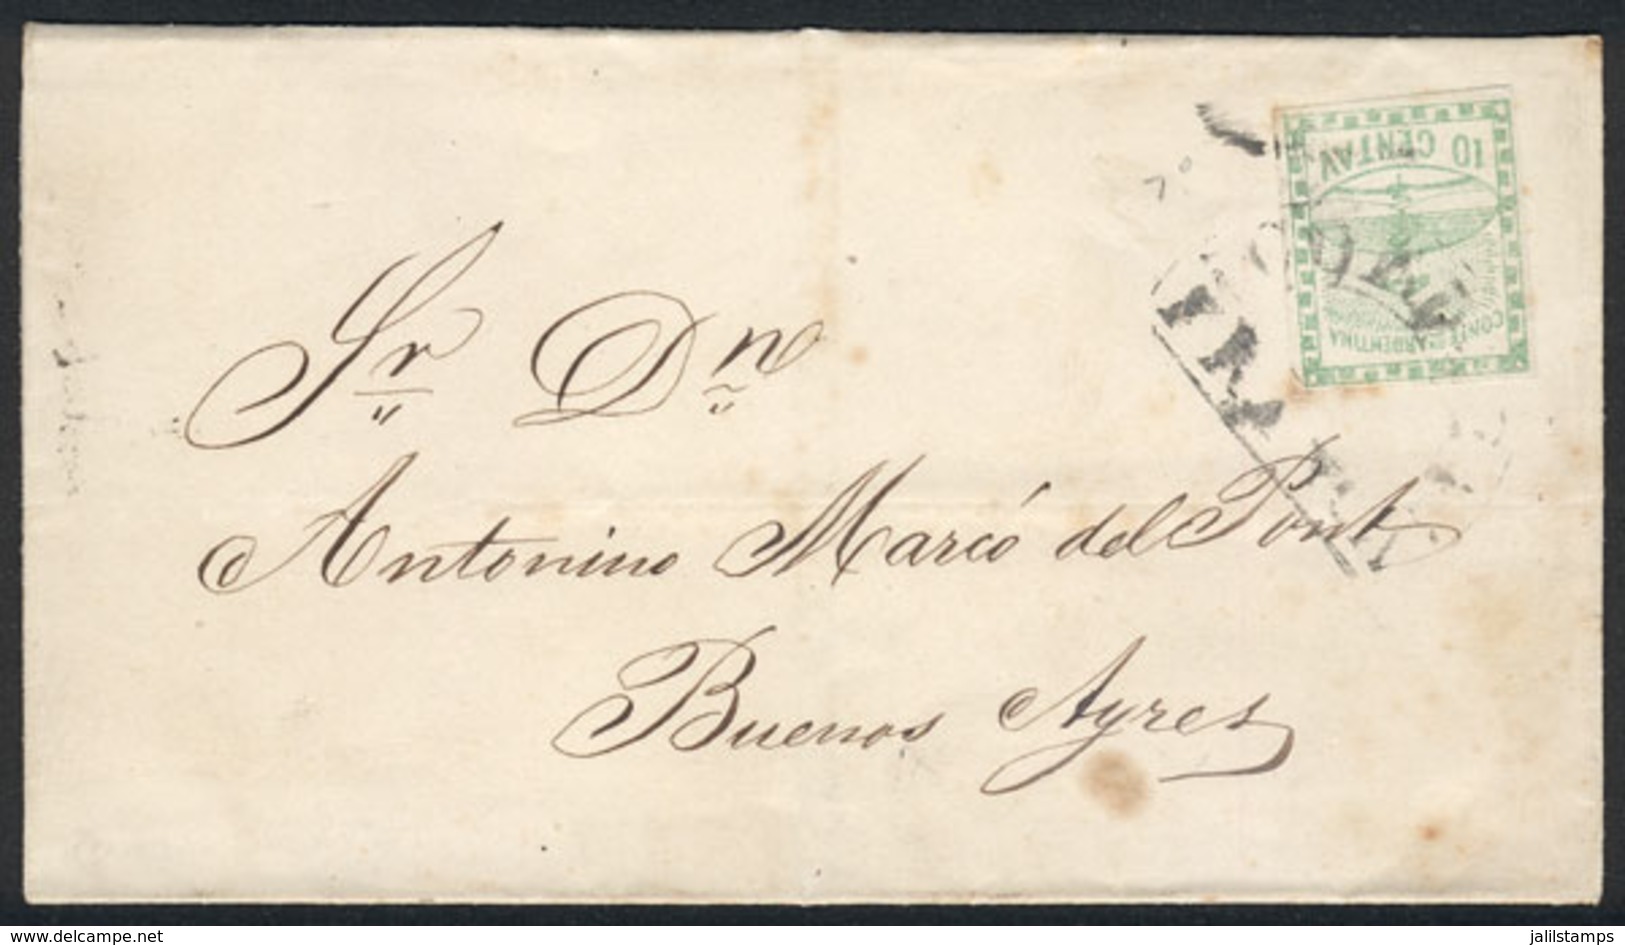 10 CENTAV
CONF. ON ARGENTINA
Sr Dn
Antonino Marcó del Pont
Buenos Ayres
www.delcampe.net
jalilstamps